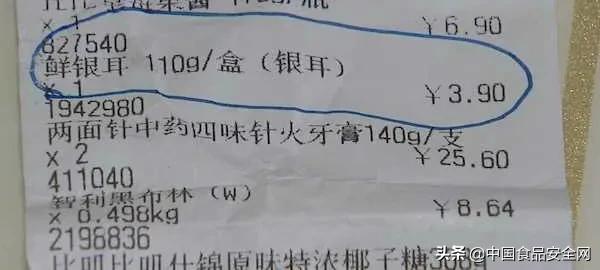 x 1 ￥6.90
827540
鲜银耳 110g/盒（银耳）
x 1 ￥3.90
1942980
两面针中药四味针火牙膏140g/支
x 2 ￥25.60
411040
智利黑布林（W）
x 0.498kg ￥8.64
2198836
比叽比叽什锦原味特浓椰子糖
头条 @中国食品安全网